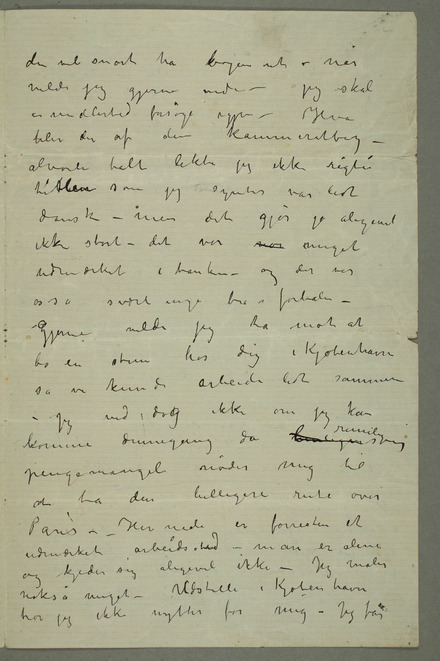 du vel snart ha bogen ut – når
vilde jeg gjerne vide – jeg skal
imidlertid forsöge – Hva
blir der af den Kammerat –
alvorlig talt likte jeg ikke rigtig
titlen som jeg syntes var lidt
dansk – men det gjör jo alligevel
ikke stort – det var meget
udmærket i tanken – og der var
også svært mye bra i fortalen –
Gjerne vilde jeg ha mot at
bo en stund hos dig i Kjöbenhavn
så vi kunde arbeide lidt sammen
– Jeg ved idag ikke om jeg kan
komme denne gang da rimeligvis
pengemangel nöder mig til
at ta den billigere rute over
Paris – Her nede er forresten et
udmærket arbeidssted – man er alene
og kjeder sig alligevel ikke – Jeg maler
också meget – Udstille i Kjöbenhavn
tror jeg ikke nytter for mig – Jeg får